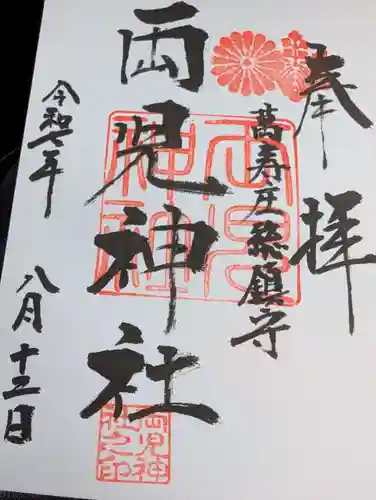 奉拝
萬寿庄総鎮守
両児神社
両児神社之印
令和七年
八月十三日